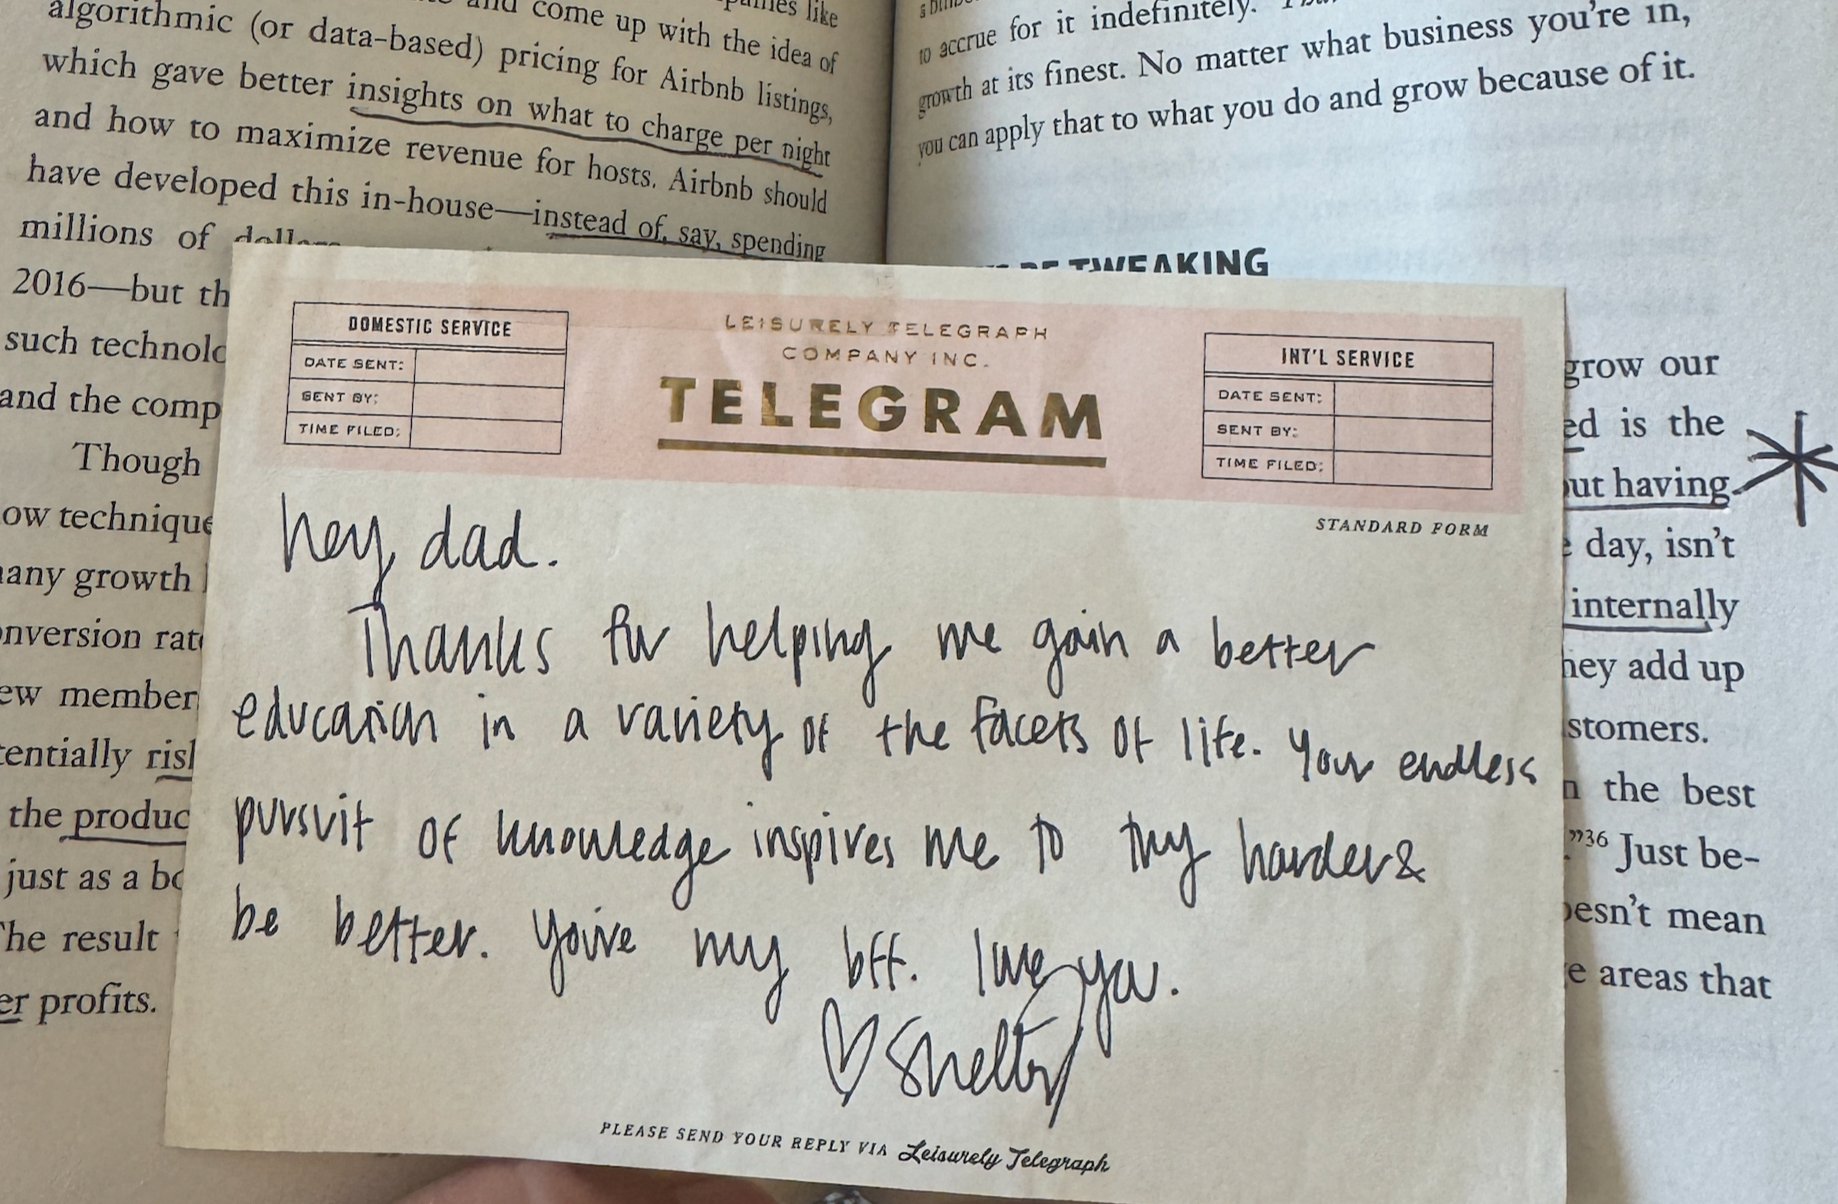 algorithmic (or data-based) pricing for Airbnb listings,
come up with the idea of
which gave better insights on what to charge per night
and how to maximize revenue for hosts. Airbnb should
have developed this in-house—instead of, say, spending
millions of
2016—but th
such technolo
and the comp
Though
ow technique
many growth
nversion rate
ew member
tentially risk
the produc
just as a bo
The result
er profits.
to accrue for it indefinitely.
growth at its finest. No matter what business you're in,
you can apply that to what you do and grow because of it.
TWEAKING
grow our
ed is the
out having
day, isn't
internally
they add up
stomers.
the best
”36 Just be-
oesn't mean
e areas that
DOMESTIC SERVICE
DATE SENT:
SENT BY:
TIME FILED:
LEISURELY TELEGRAPH
COMPANY INC.
TELEGRAM
INT'L SERVICE
DATE SENT:
SENT BY:
TIME FILED:
STANDARD FORM
hey dad.
Thanks for helping me gain a better
education in a variety of the facets of life. Your endless
pursuit of knowledge inspires me to try harder &
be better. You're my bff. love you.
♡ Shelby
PLEASE SEND YOUR REPLY VIA Leisurely Telegraph